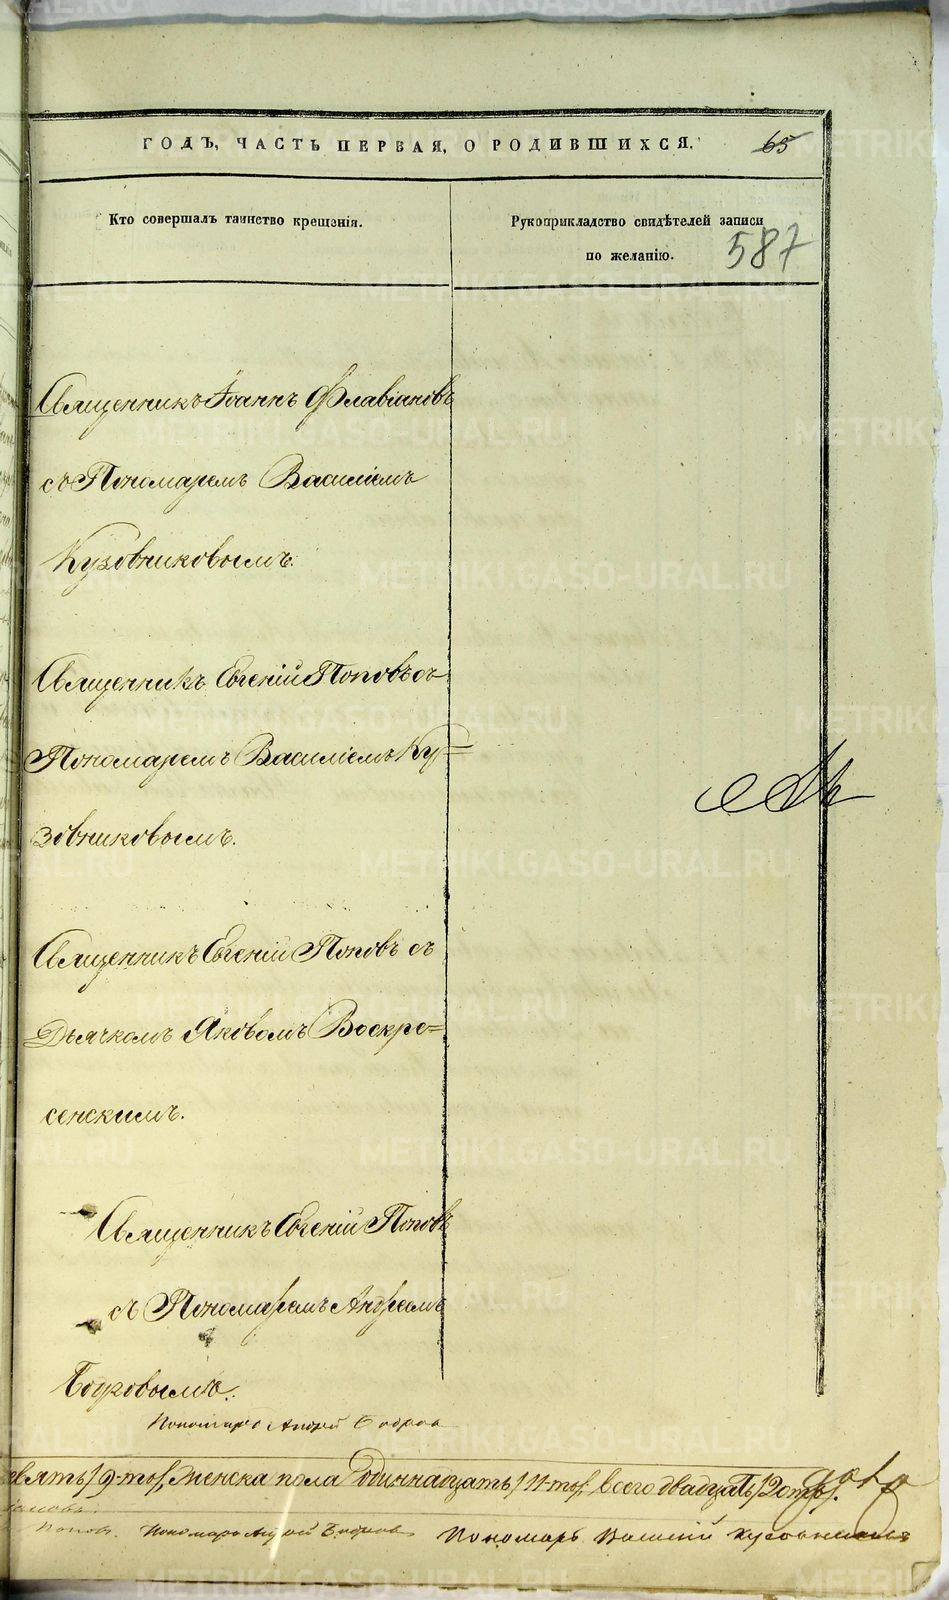 ГОДЪ, ЧАСТЬ ПЕРВАЯ, О РОДИВШИХСЯ.
65
Кто совершалъ таинство крещенія.
Рукоприкладство свидѣтелей записи
по желанію.
587
Священникъ Іоаннъ Флавіановъ
съ Пономаремъ Василіемъ
Кузовниковымъ.
Священникъ Евгеній Поповъ съ
Пономаремъ Василіемъ Ку=
зовниковымъ.
Священникъ Евгеній Поповъ съ
Дьячкомъ Яковомъ Воскре=
сенскимъ.
Священникъ Евгеній Поповъ
съ Пономаремъ Андреемъ
Бобровымъ.
Пономарь Андрей Бобровъ
евять/9-ть/, женска пола одиннадцать/11-ть/, всего двадцать/20ть/.
Поповъ. Пономарь Андрей Бобровъ Пономарь Василій Кузовниковъ
METRIKI.GASO-URAL.RU